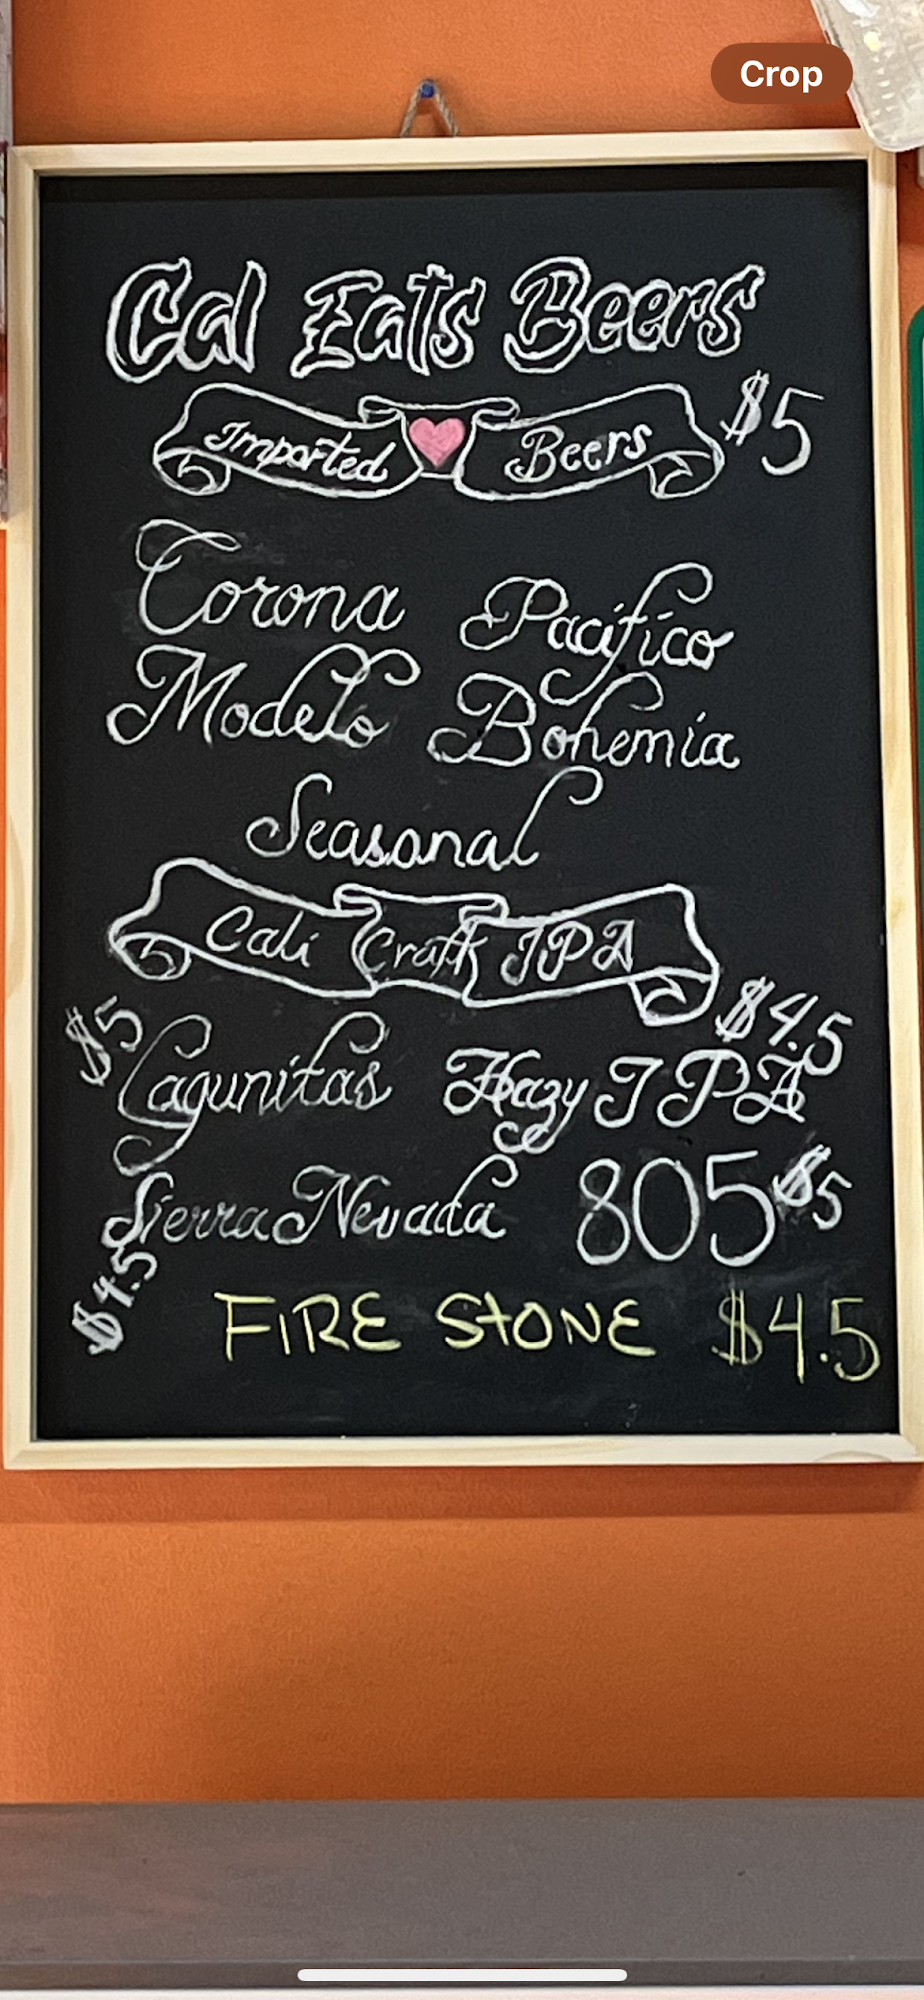 Crop
Cal Eats Beers
Imported Beers $5
Corona Pacifico
Modelo Bohemia
Seasonal
Cali Craft IPA
$5 Lagunitas Hazy IPA $4.5
Sierra Nevada 805 $5
$4.5
FIRE STONE $4.5